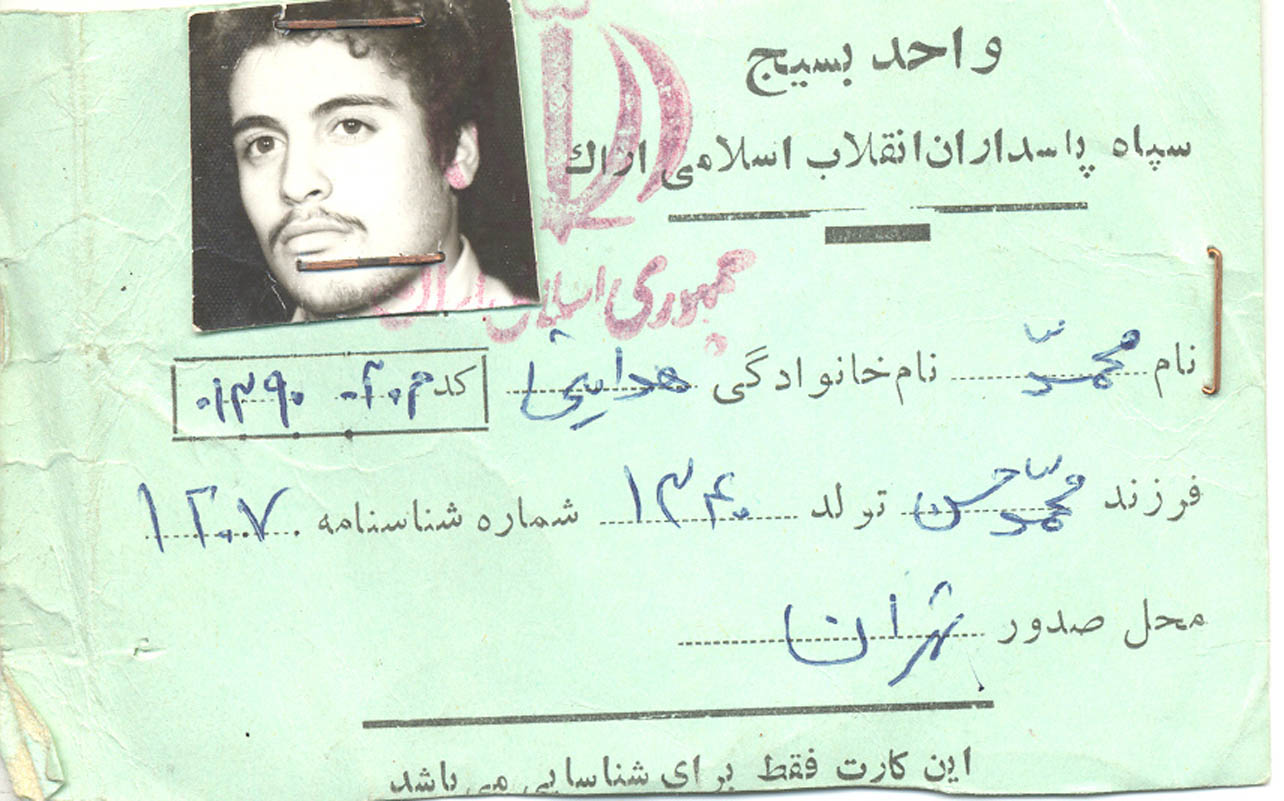 واحد بسیج
سپاه پاسداران انقلاب اسلامی اراك
جمهوری اسلامی ایران
نام محمّد نام خانوادگی هدایتی کد
فرزند محمّد حسن تولد ۱۳۴۰ شماره شناسنامه ۱۲۰۷
محل صدور تهران
این کارت فقط برای شناسایی می باشد